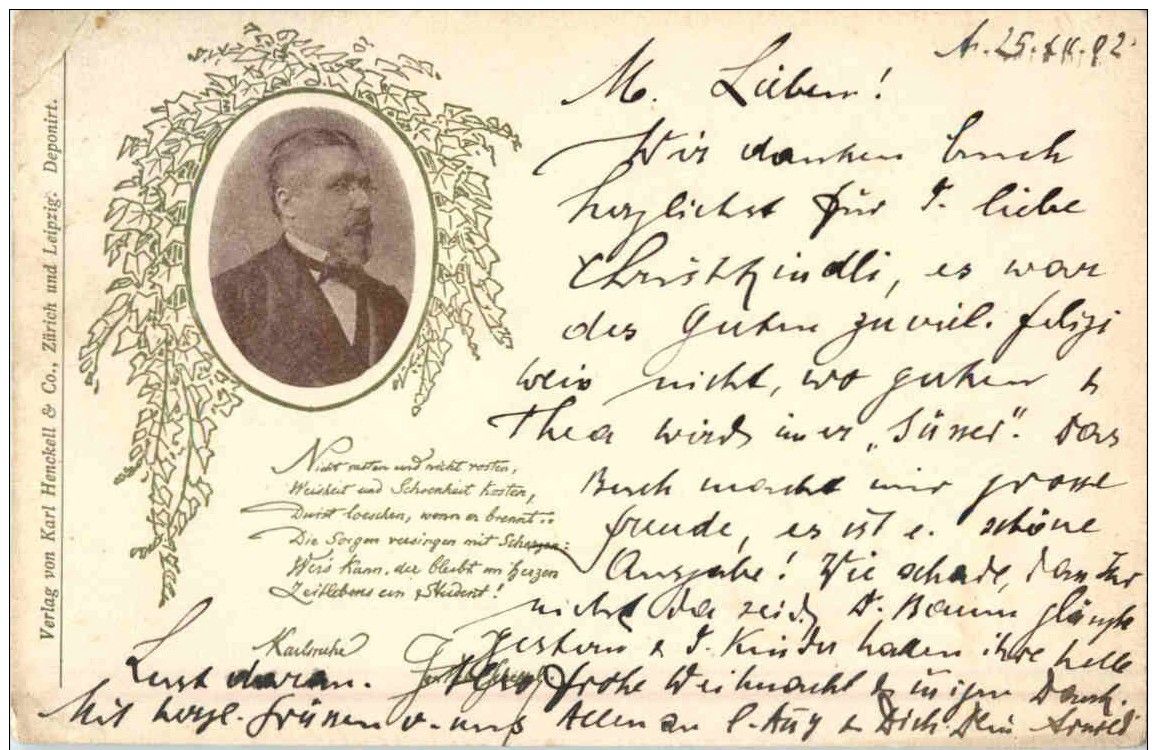 Verlag von Karl Henckell & Co., Zürich und Leipzig. Deponirt.
25.
M. Lieben!
Wir danken Euch
herzlichst für d. liebe
Christkindli, es war
des Guten zuviel. Felizi
weis nicht, wo gucken &
Thea wird immer „Süsser". Das
Buch macht mir grosse
Freude, es ist e. schöne
Ausgabe! Wie schade, dass Ihr
nicht da seid. D. Baum glänzte
gestern & d. Kinder hatten ihre helle
Lust daran. Also frohe Weihnacht & innigen Dank.
Mit herzl. Grüssen v. uns Allen an & Dich. Dein Arnold
Nicht rasten und nicht rosten,
Weisheit und Schoenheit kosten,
Durst loeschen, wenn er brennt:
Die Sorgen versingen mit Scherzen:
Wer's kann, der bleibt im Herzen
Zeitlebens ein Student!
Karlsruhe